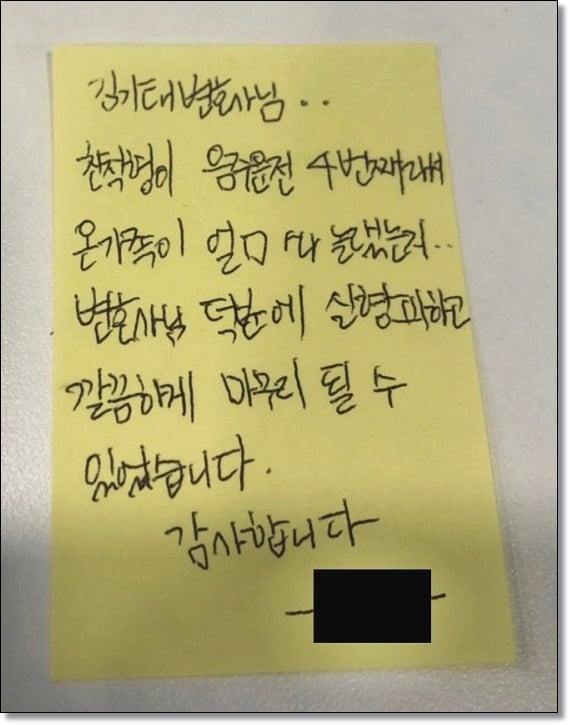 김기태변호사님..
친척형이 음주운전 4번째래서
온가족이 얼마나 놀랬는지..
변호사님 덕분에 실형피하고
깔끔하게 마무리 될 수
있었습니다.
감사합니다